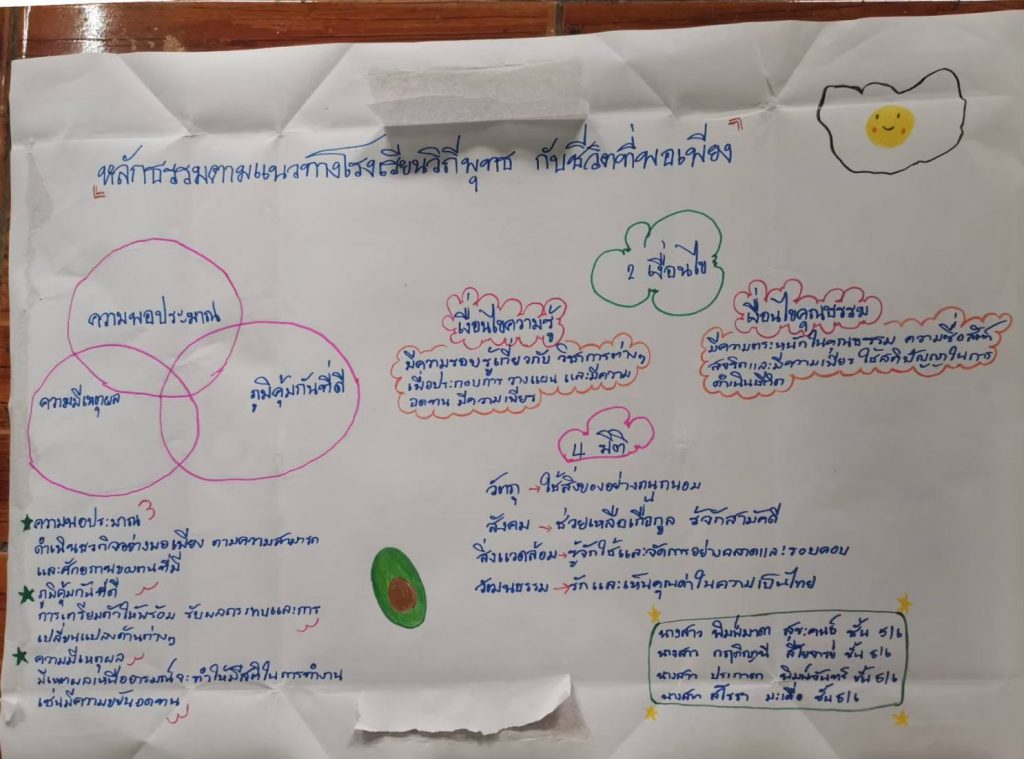 "หลักธรรมตามแนวทางโรงเรียนวิถีพุทธ กับชีวิตที่พอเพียง"
ความพอประมาณ
ความมีเหตุผล
ภูมิคุ้มกันที่ดี
2 เงื่อนไข
เงื่อนไขความรู้
มีความรอบรู้เกี่ยวกับ วิชาการต่างๆ
เพื่อประกอบการ วางแผน และมีความ
อดทน มีความเพียร
เงื่อนไขคุณธรรม
มีความตระหนักในคุณธรรม ความซื่อสัตย์
สุจริตและมีความเพียร ใช้สติปัญญาในการ
ดำเนินชีวิต
4 มิติ
วัตถุ → ใช้สิ่งของอย่างถนุถนอม
สังคม → ช่วยเหลือเกื้อกูล รู้จักสามัคคี
สิ่งแวดล้อม → รู้จักใช้และจัดการอย่างฉลาดและรอบคอบ
วัฒนธรรม → รักและเห็นคุณค่าในความเป็นไทย
★ ความพอประมาณ
ดำเนินธุรกิจอย่างพอเพียง ตามความสามารถ
และศักยภาพของตนที่มี
★ ภูมิคุ้มกันที่ดี
การเตรียมตัวให้พร้อม รับผลกระทบและการ
เปลี่ยนแปลงด้านต่างๆ
★ ความมีเหตุผล
มีเหตุผลเหนืออารมณ์จะทำให้มีสติในการทำงาน
เช่นมีความขยันอดทน
นางสาว พิมพ์มาดา สุขะคนธ์ ชั้น 5/6
นางสาว ชั้น 5/6
นางสาว ประภาดา พิมพ์จันทร์ ชั้น 5/6
นางสาว สโรชา มะเดื่อ ชั้น 5/6